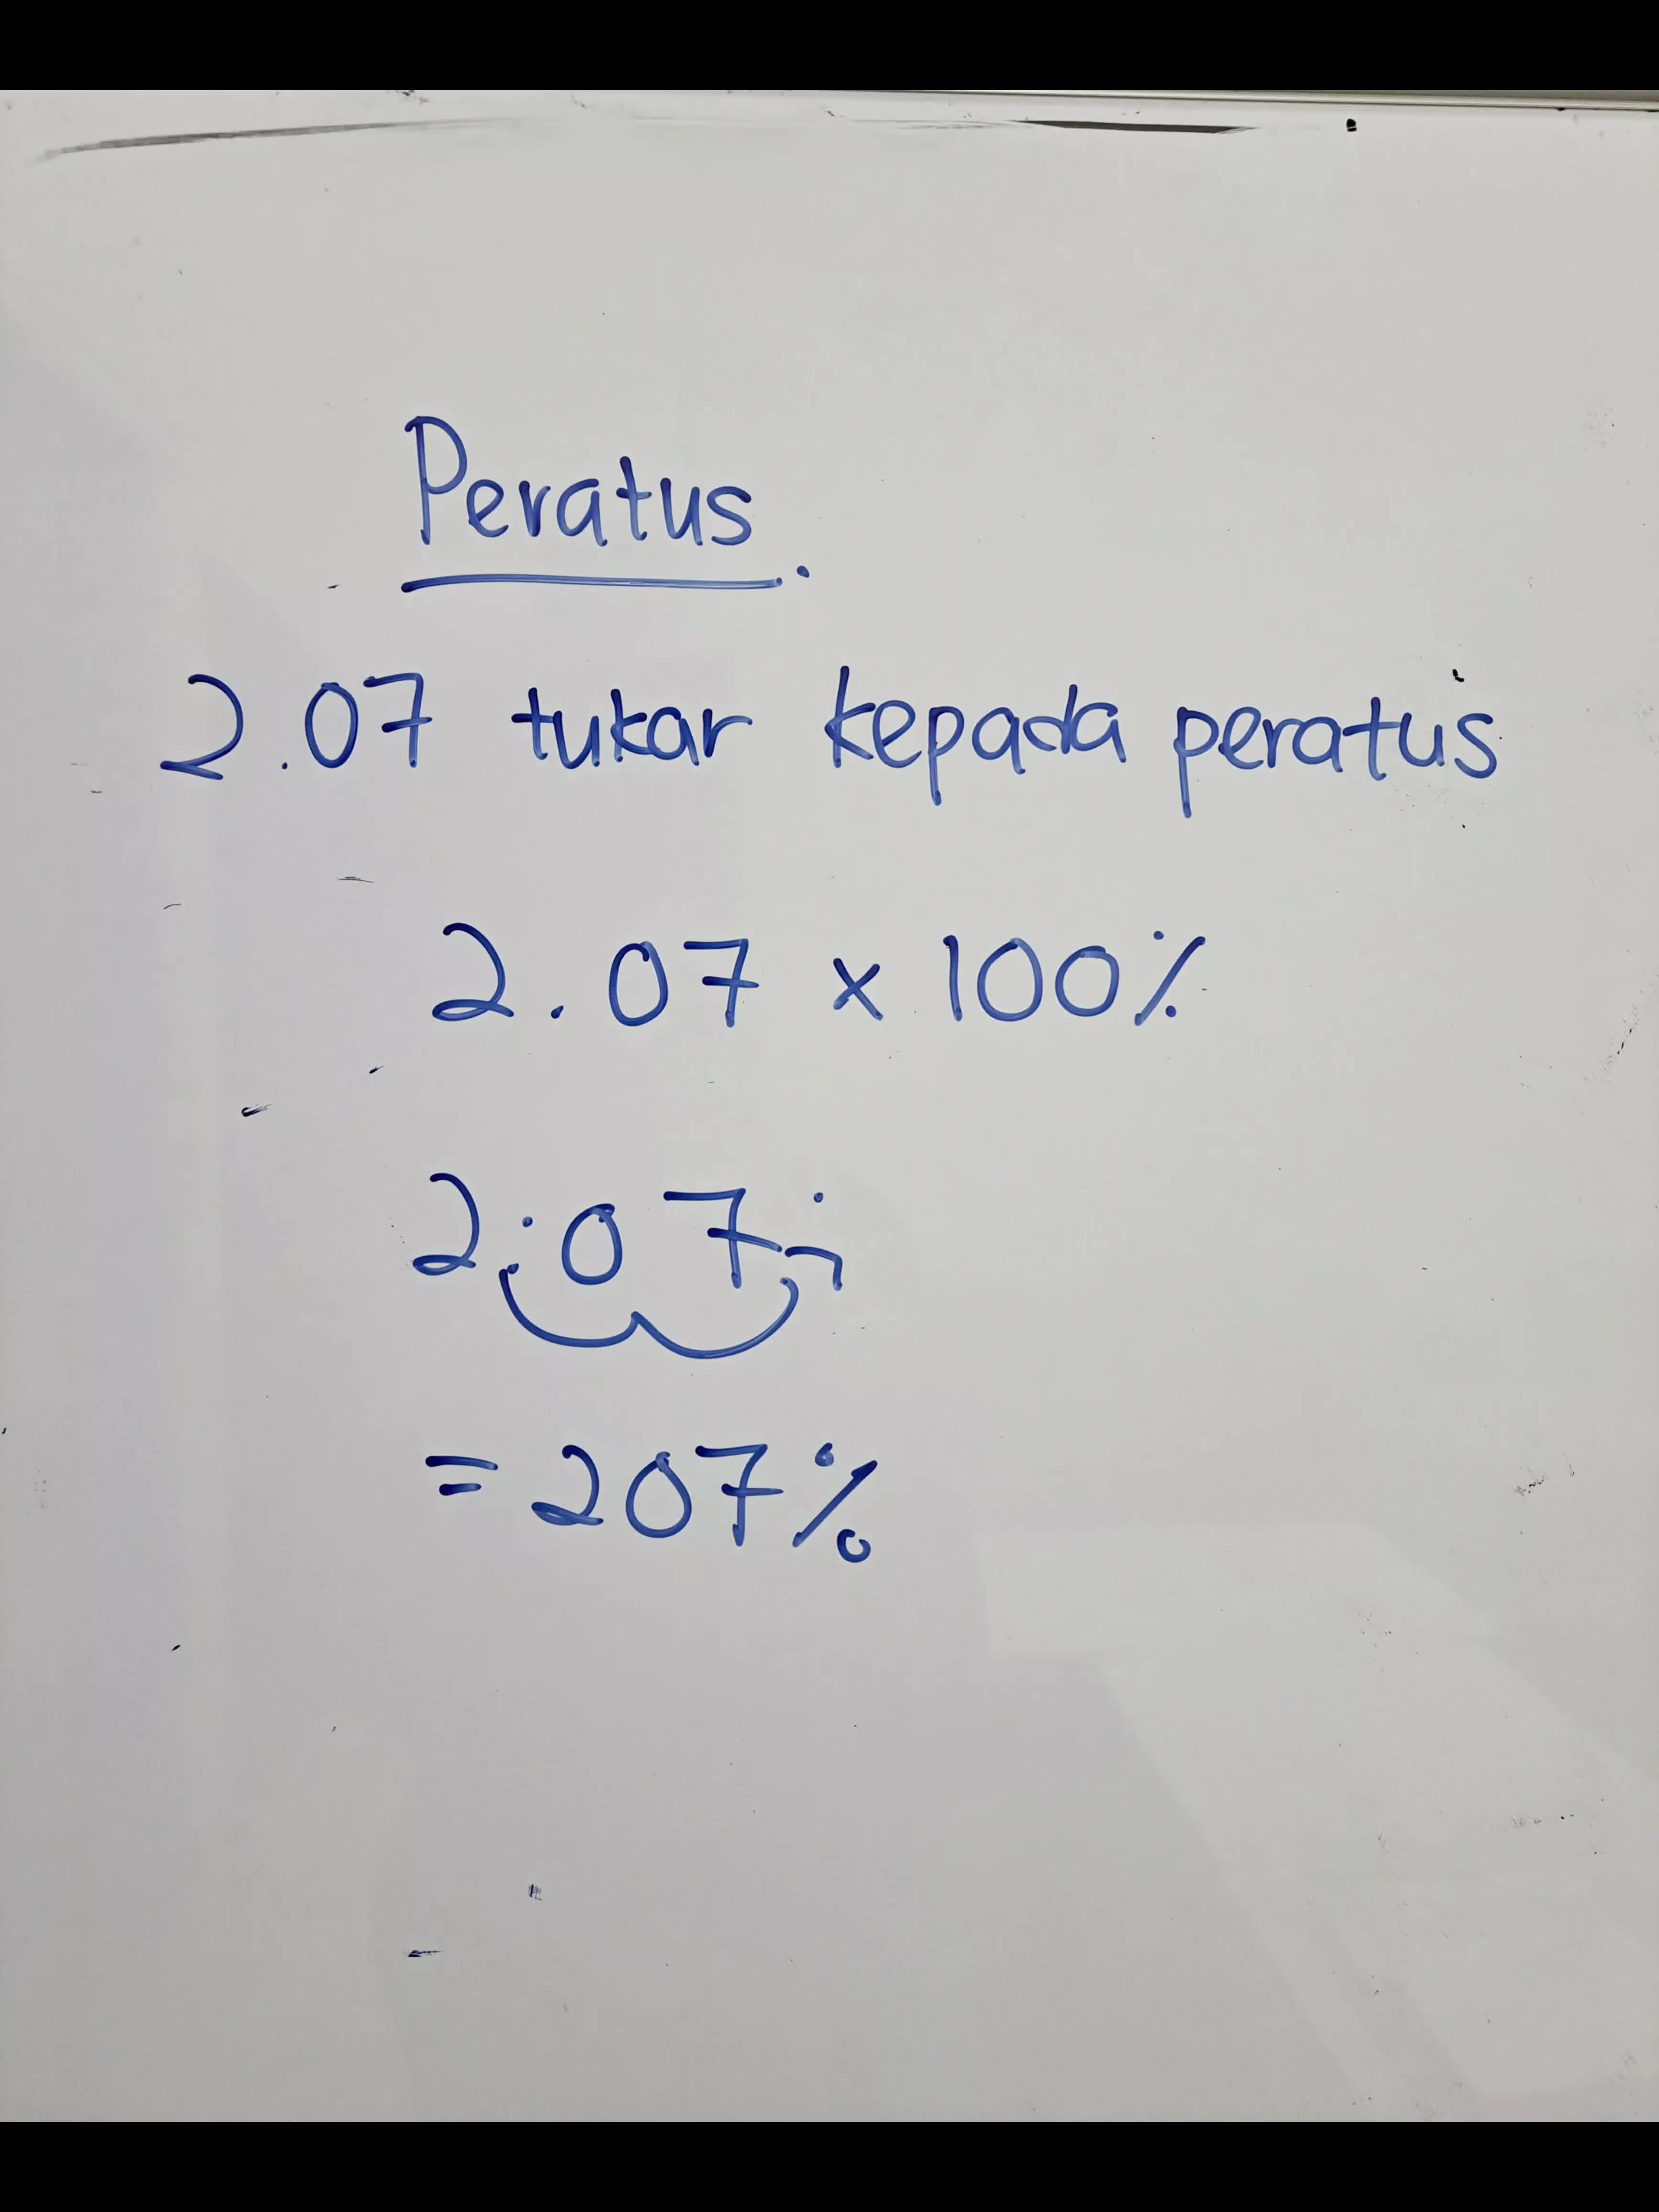 Peratus.
2.07 tukar kepada peratus
2.07 x 100%
2.07
= 207%